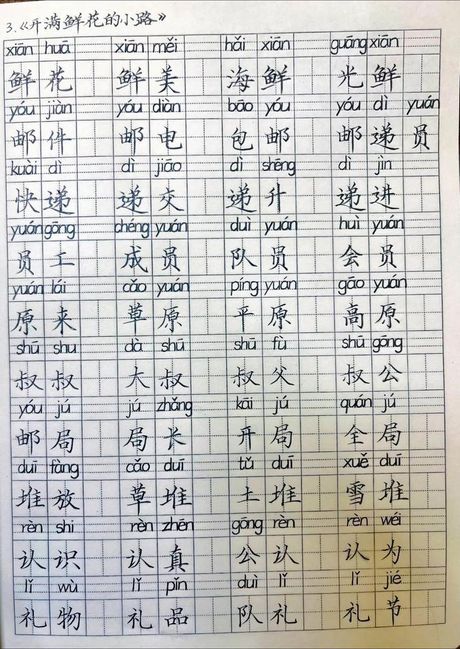 3.《开满鲜花的小路》
xiān huā xiān měi hǎi xiān guāng xiān
鲜花 鲜美 海鲜 光鲜
yóu jiàn yóu diàn bāo yóu yóu dì yuán
邮件 邮电 包邮 邮递员
kuài dì dì jiāo dì shēng dì jìn
快递 递交 递升 递进
yuán gōng chéng yuán duì yuán huì yuán
员工 成员 队员 会员
yuán lái cǎo yuán píng yuán gāo yuán
原来 草原 平原 高原
shū shu dà shū shū fù shū gōng
叔叔 大叔 叔父 叔公
yóu jú jú zhǎng kāi jú quán jú
邮局 局长 开局 全局
duī fàng cǎo duī tǔ duī xuě duī
堆放 草堆 土堆 雪堆
rèn shi rèn zhēn gōng rèn rèn wéi
认识 认真 公认 认为
lǐ wù lǐ pǐn duì lǐ lǐ jié
礼物 礼品 队礼 礼节